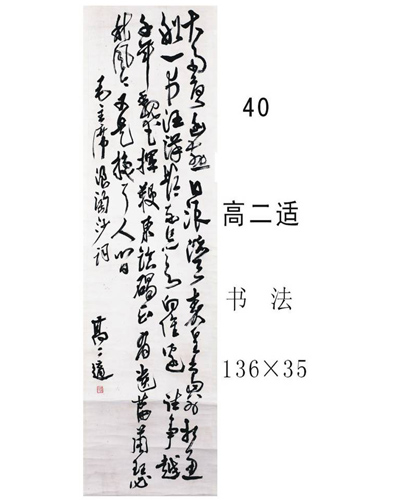 大雨落幽燕白浪滔天秦皇岛外打鱼
船一片汪洋都不见知向谁边往事越
千年魏武挥鞭东临碣石有遗篇萧瑟
秋风今又是换了人间
毛主席浪淘沙词
高二適
40
高二适
书 法
136×35